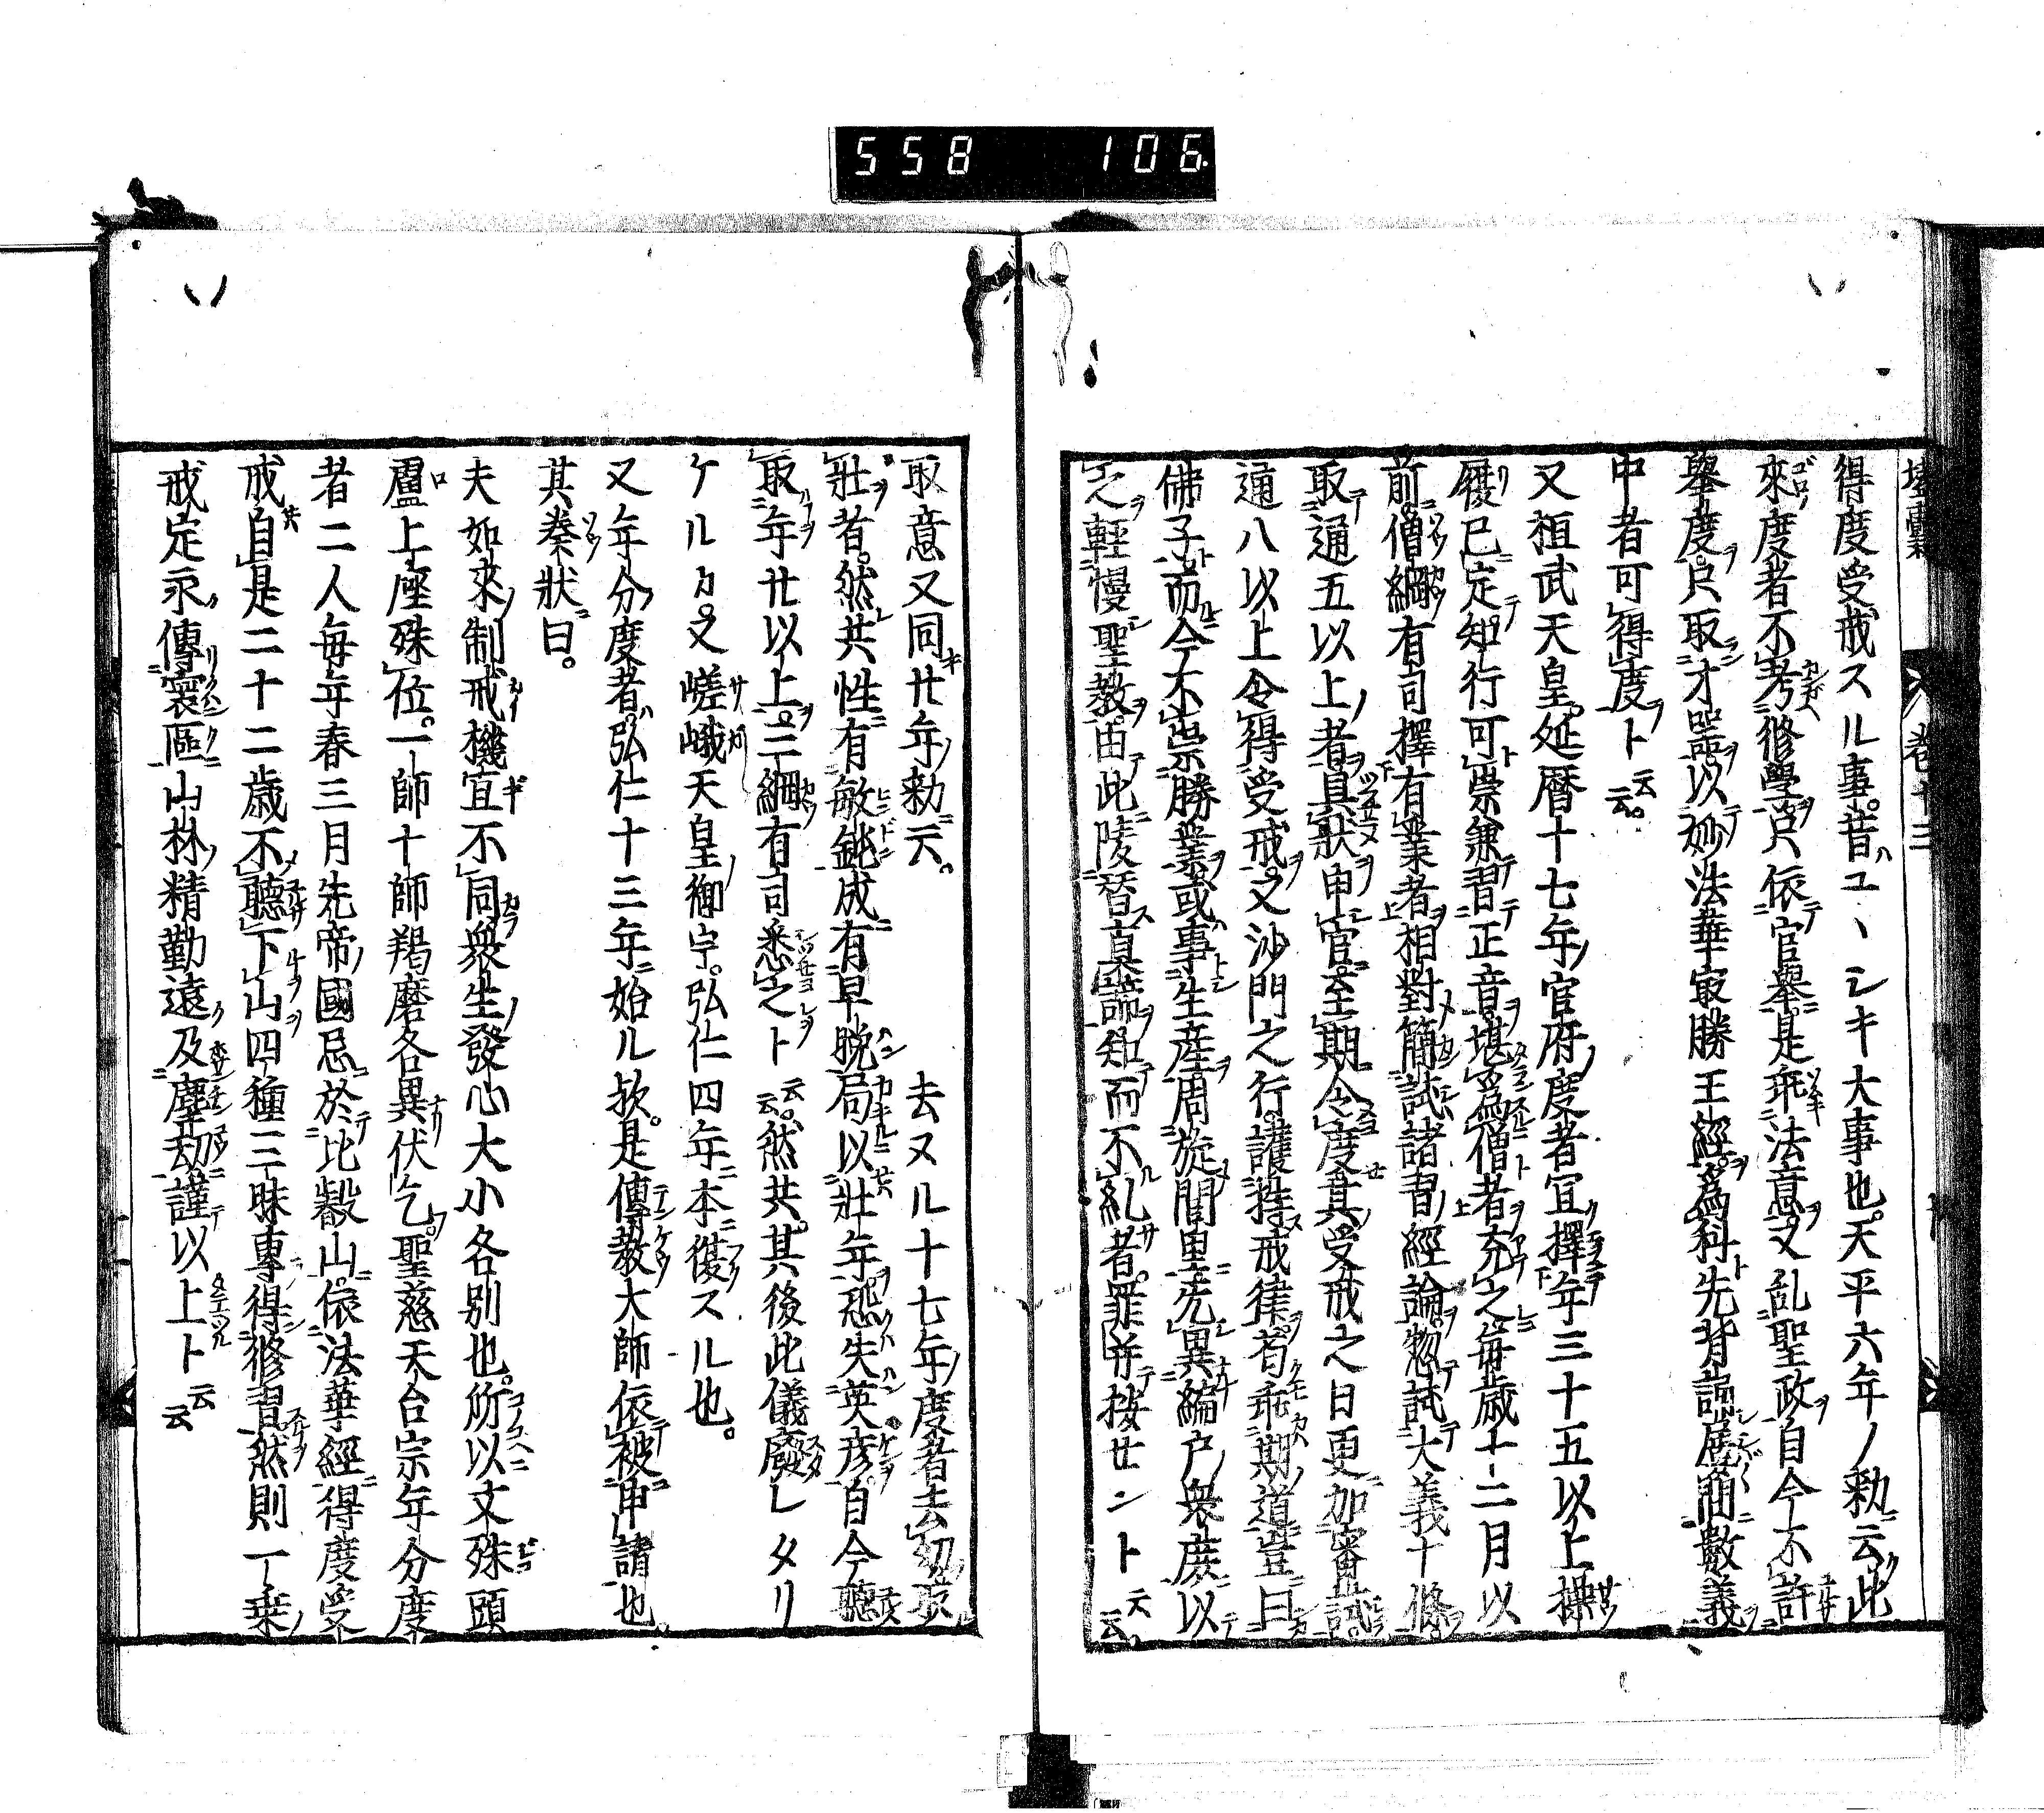 558 106
壒囊 卷十三
得度受戒スル事。昔ハユヽシキ大事也。天平六年ノ勅云。此
來度者不考修學。只依官舉。是乖法意。又乱聖政。自今不許
舉度。只取才器。以妙法華最勝王經。爲科。先背誦歷間數義
中者可得度ト云云。
又桓武天皇。延曆十七年。官府。度者宜擇年三十五以上。操
履已定。知行可崇。兼習正音。堪爲僧者。充之。每歲十二月以
前。僧綱有司擇有業者。相對簡試。諸習經論。惣試大義十條。
取通五以上者。具狀申官。至期令度。其受戒之日更加審試。
通八以上令得受戒。又沙門之行。護持戒律。苟乖期道。豈曰
佛子。而今不崇勝業。或事生產。周旋閭里。先異編戶。衆庶以
之輕慢聖教。由此陵替。真諦知而不糺者。罪并按廿ントト云云。
取意又同廿年勅云。 去ヌル十七年度者去幼取
壯者。然共性有敏鈍。成有早晚。局以壯年。恐失英彦。自今聽
取年廿以上。三綱有司悉之ト云云。然共。其後此儀廢レタリ
ケルカ。又嵯峨天皇御宇。弘仁四年。本復スル也。
又年分度者。弘仁十三年始ル欤。是傳教大師依被申請也。
其奏狀曰。
夫如來制戒機宜不同。衆生發心大小各別也。所以文殊頭
盧上座殊位。一師十師羯磨各異。伏乞。聖慈天台宗年分度
者二人每年春三月先帝國忌。於比叡山。依法華經得度受
戒。自是二十二歲不聽下山。四種三昧專得修習。然則一乘
戒定永傳寰區。山林精勤遠及塵劫。謹以上ト云云